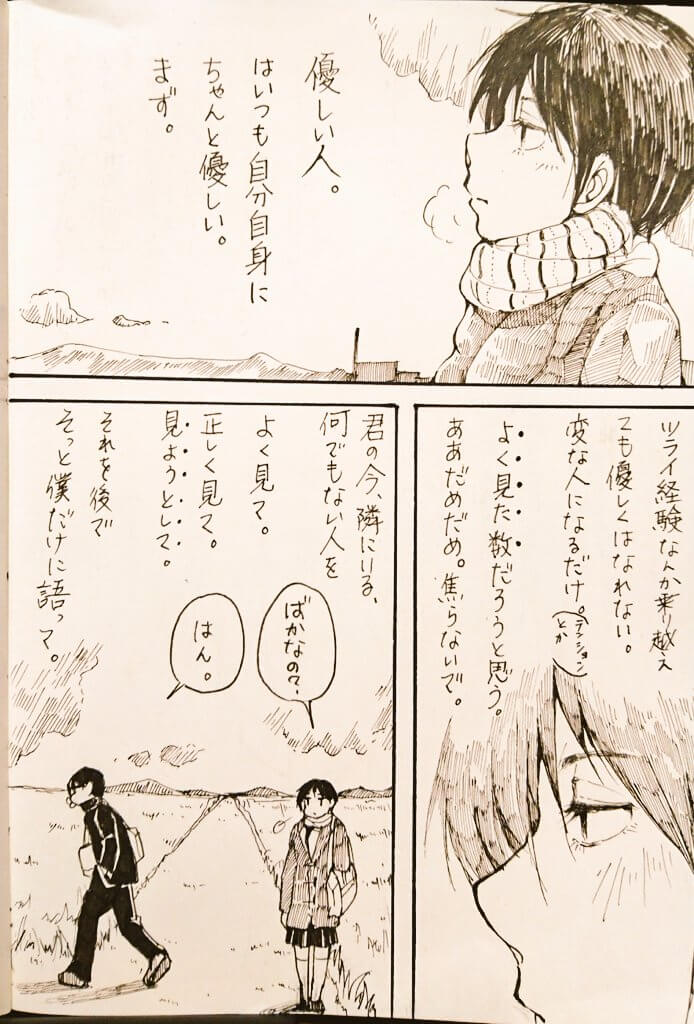 優しい人。
はいつも自分自身に
ちゃんと優しい。
まず。
ツライ経験なんか乗り越え
ても優しくはなれない。
変な人になるだけ。(テンションとか)
よく見た数だろうと思う。
ああだめだめ。焦らないで。
君の今、隣にいる、
何でもない人を
よく見て。
正しく見て。
見ようとして。
それを後で
そっと僕だけに語って。
ばかなの?
はん。